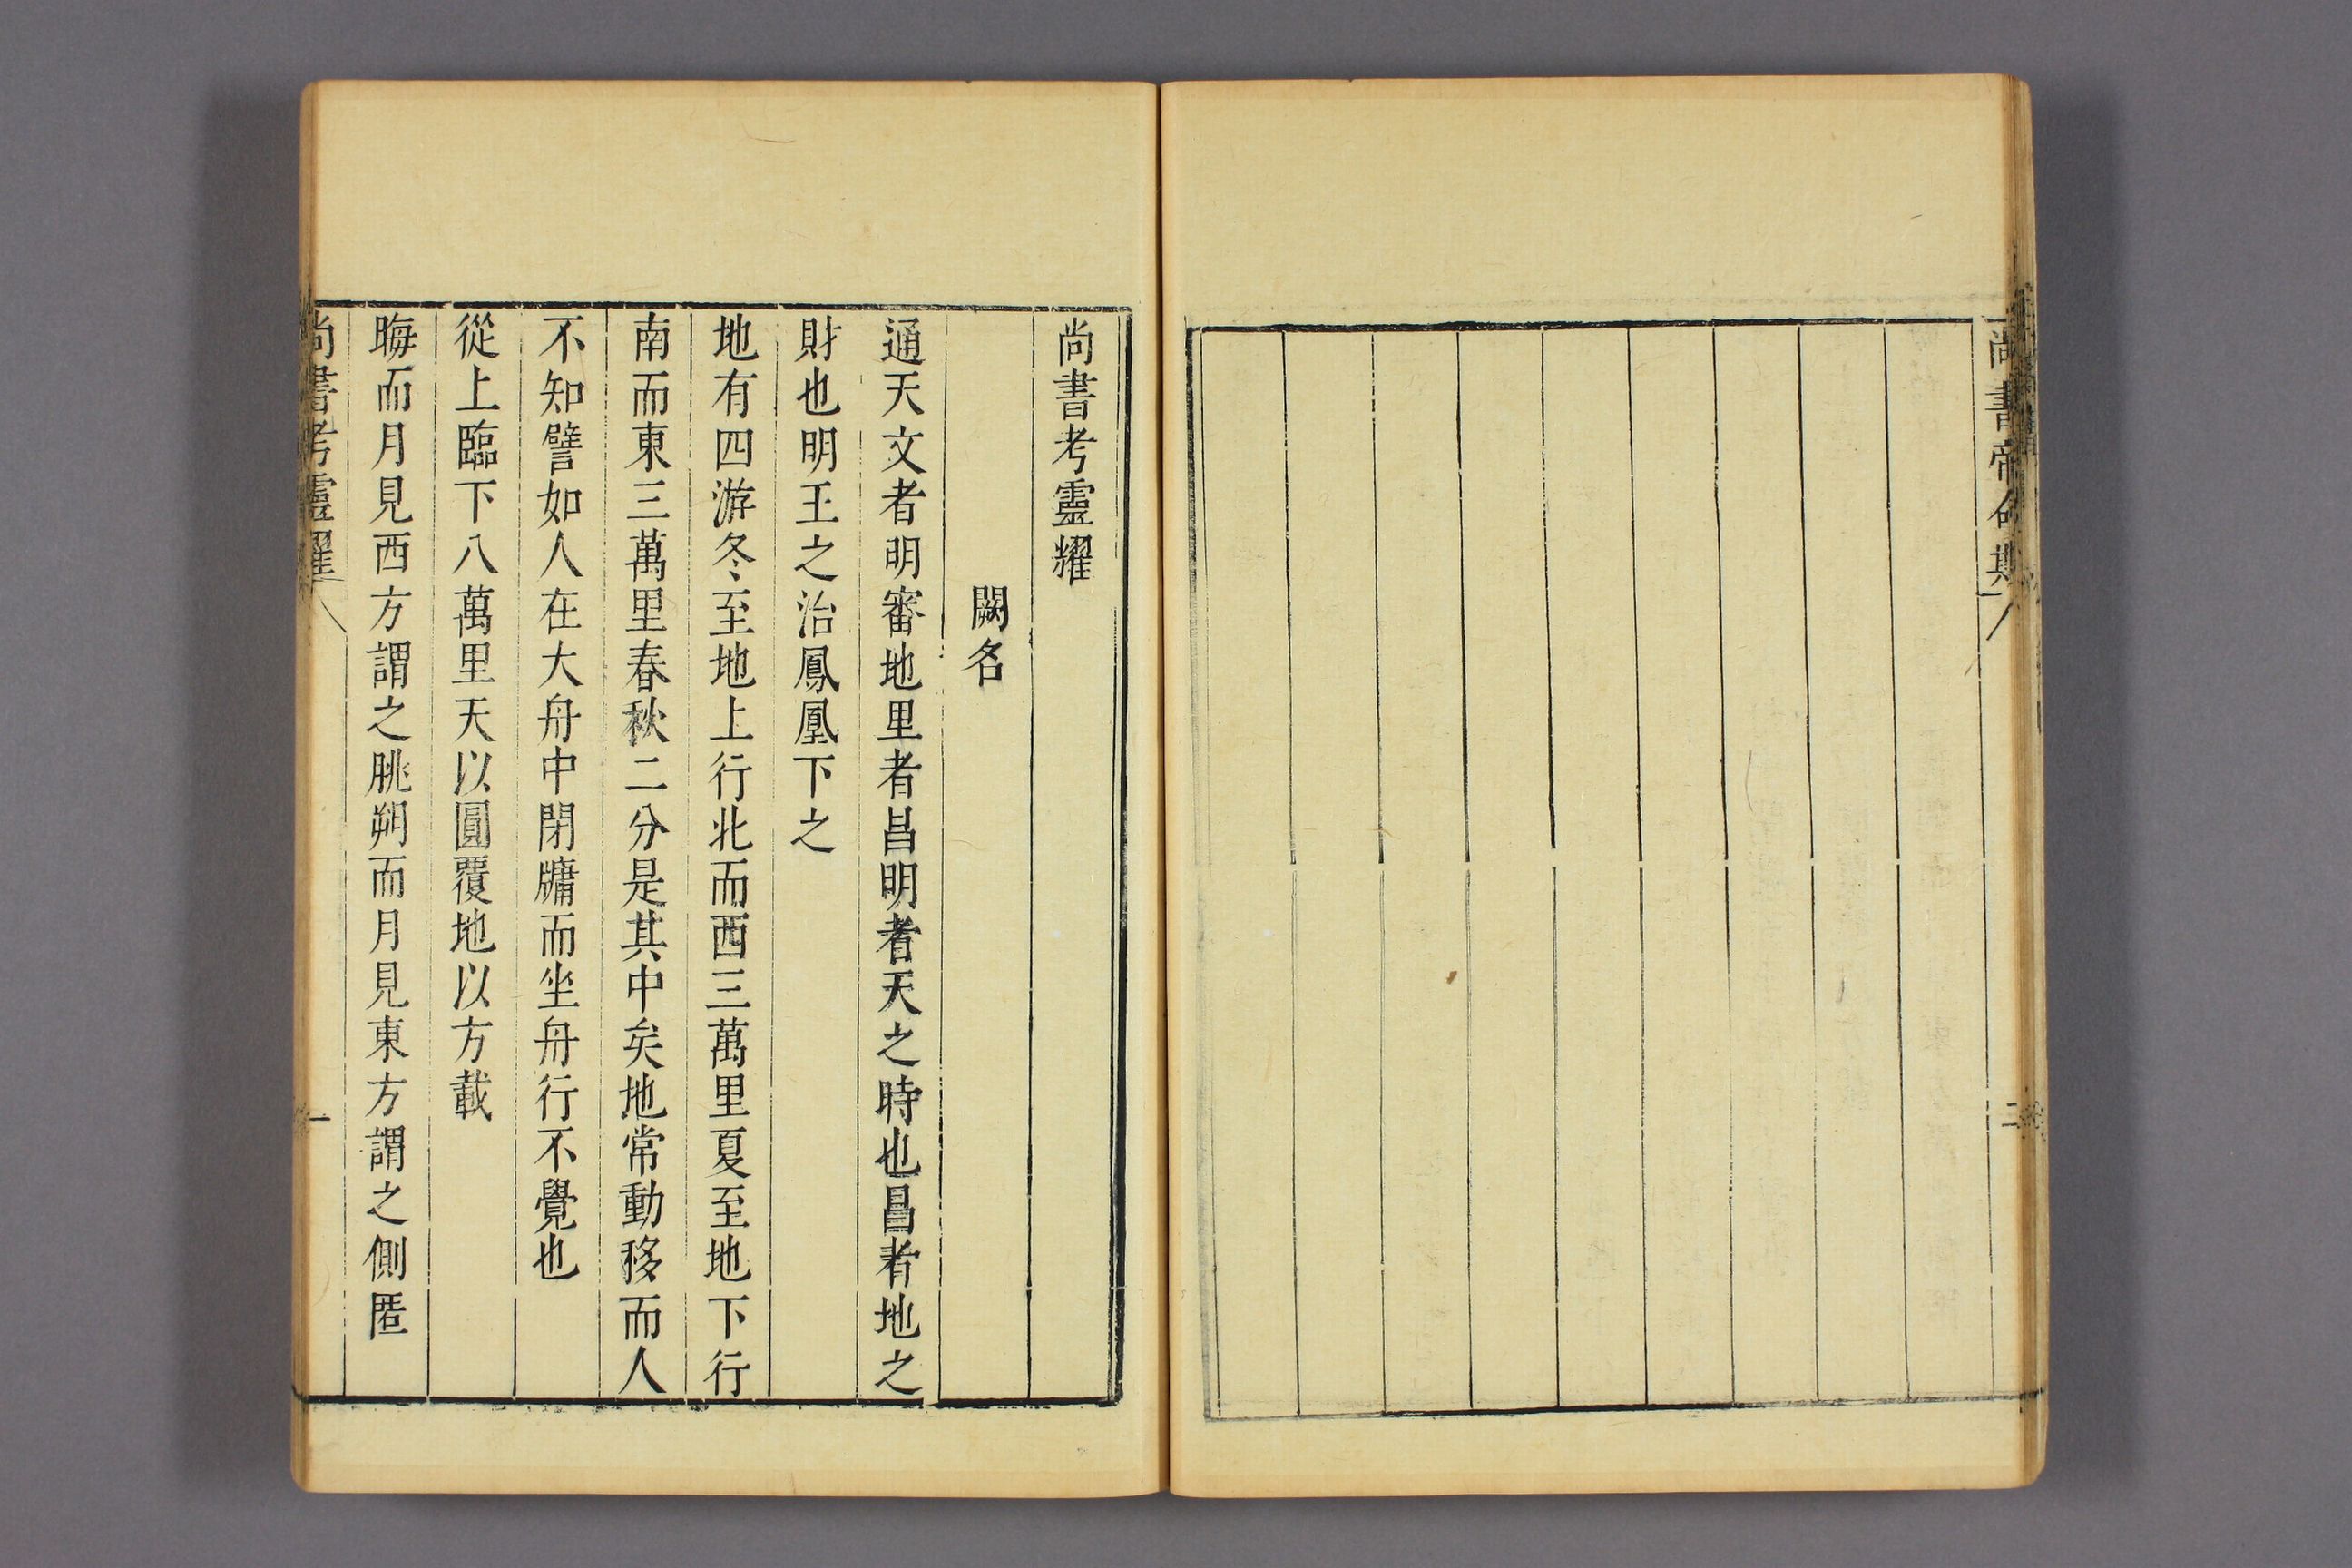 尚書帝命期
二
尚書考靈耀
闕名
通天文者明審地里者昌明者天之時也昌者地之
財也明王之治鳳凰下之
地有四游冬至地上行北而西三萬里夏至地下行
南而東三萬里春秋二分是其中矣地常動移而人
不知譬如人在大舟中閉牖而坐舟行不覺也
從上臨下八萬里天以圓覆地以方載
晦而月見西方謂之朓朔而月見東方謂之側匿
尚書考靈耀
一